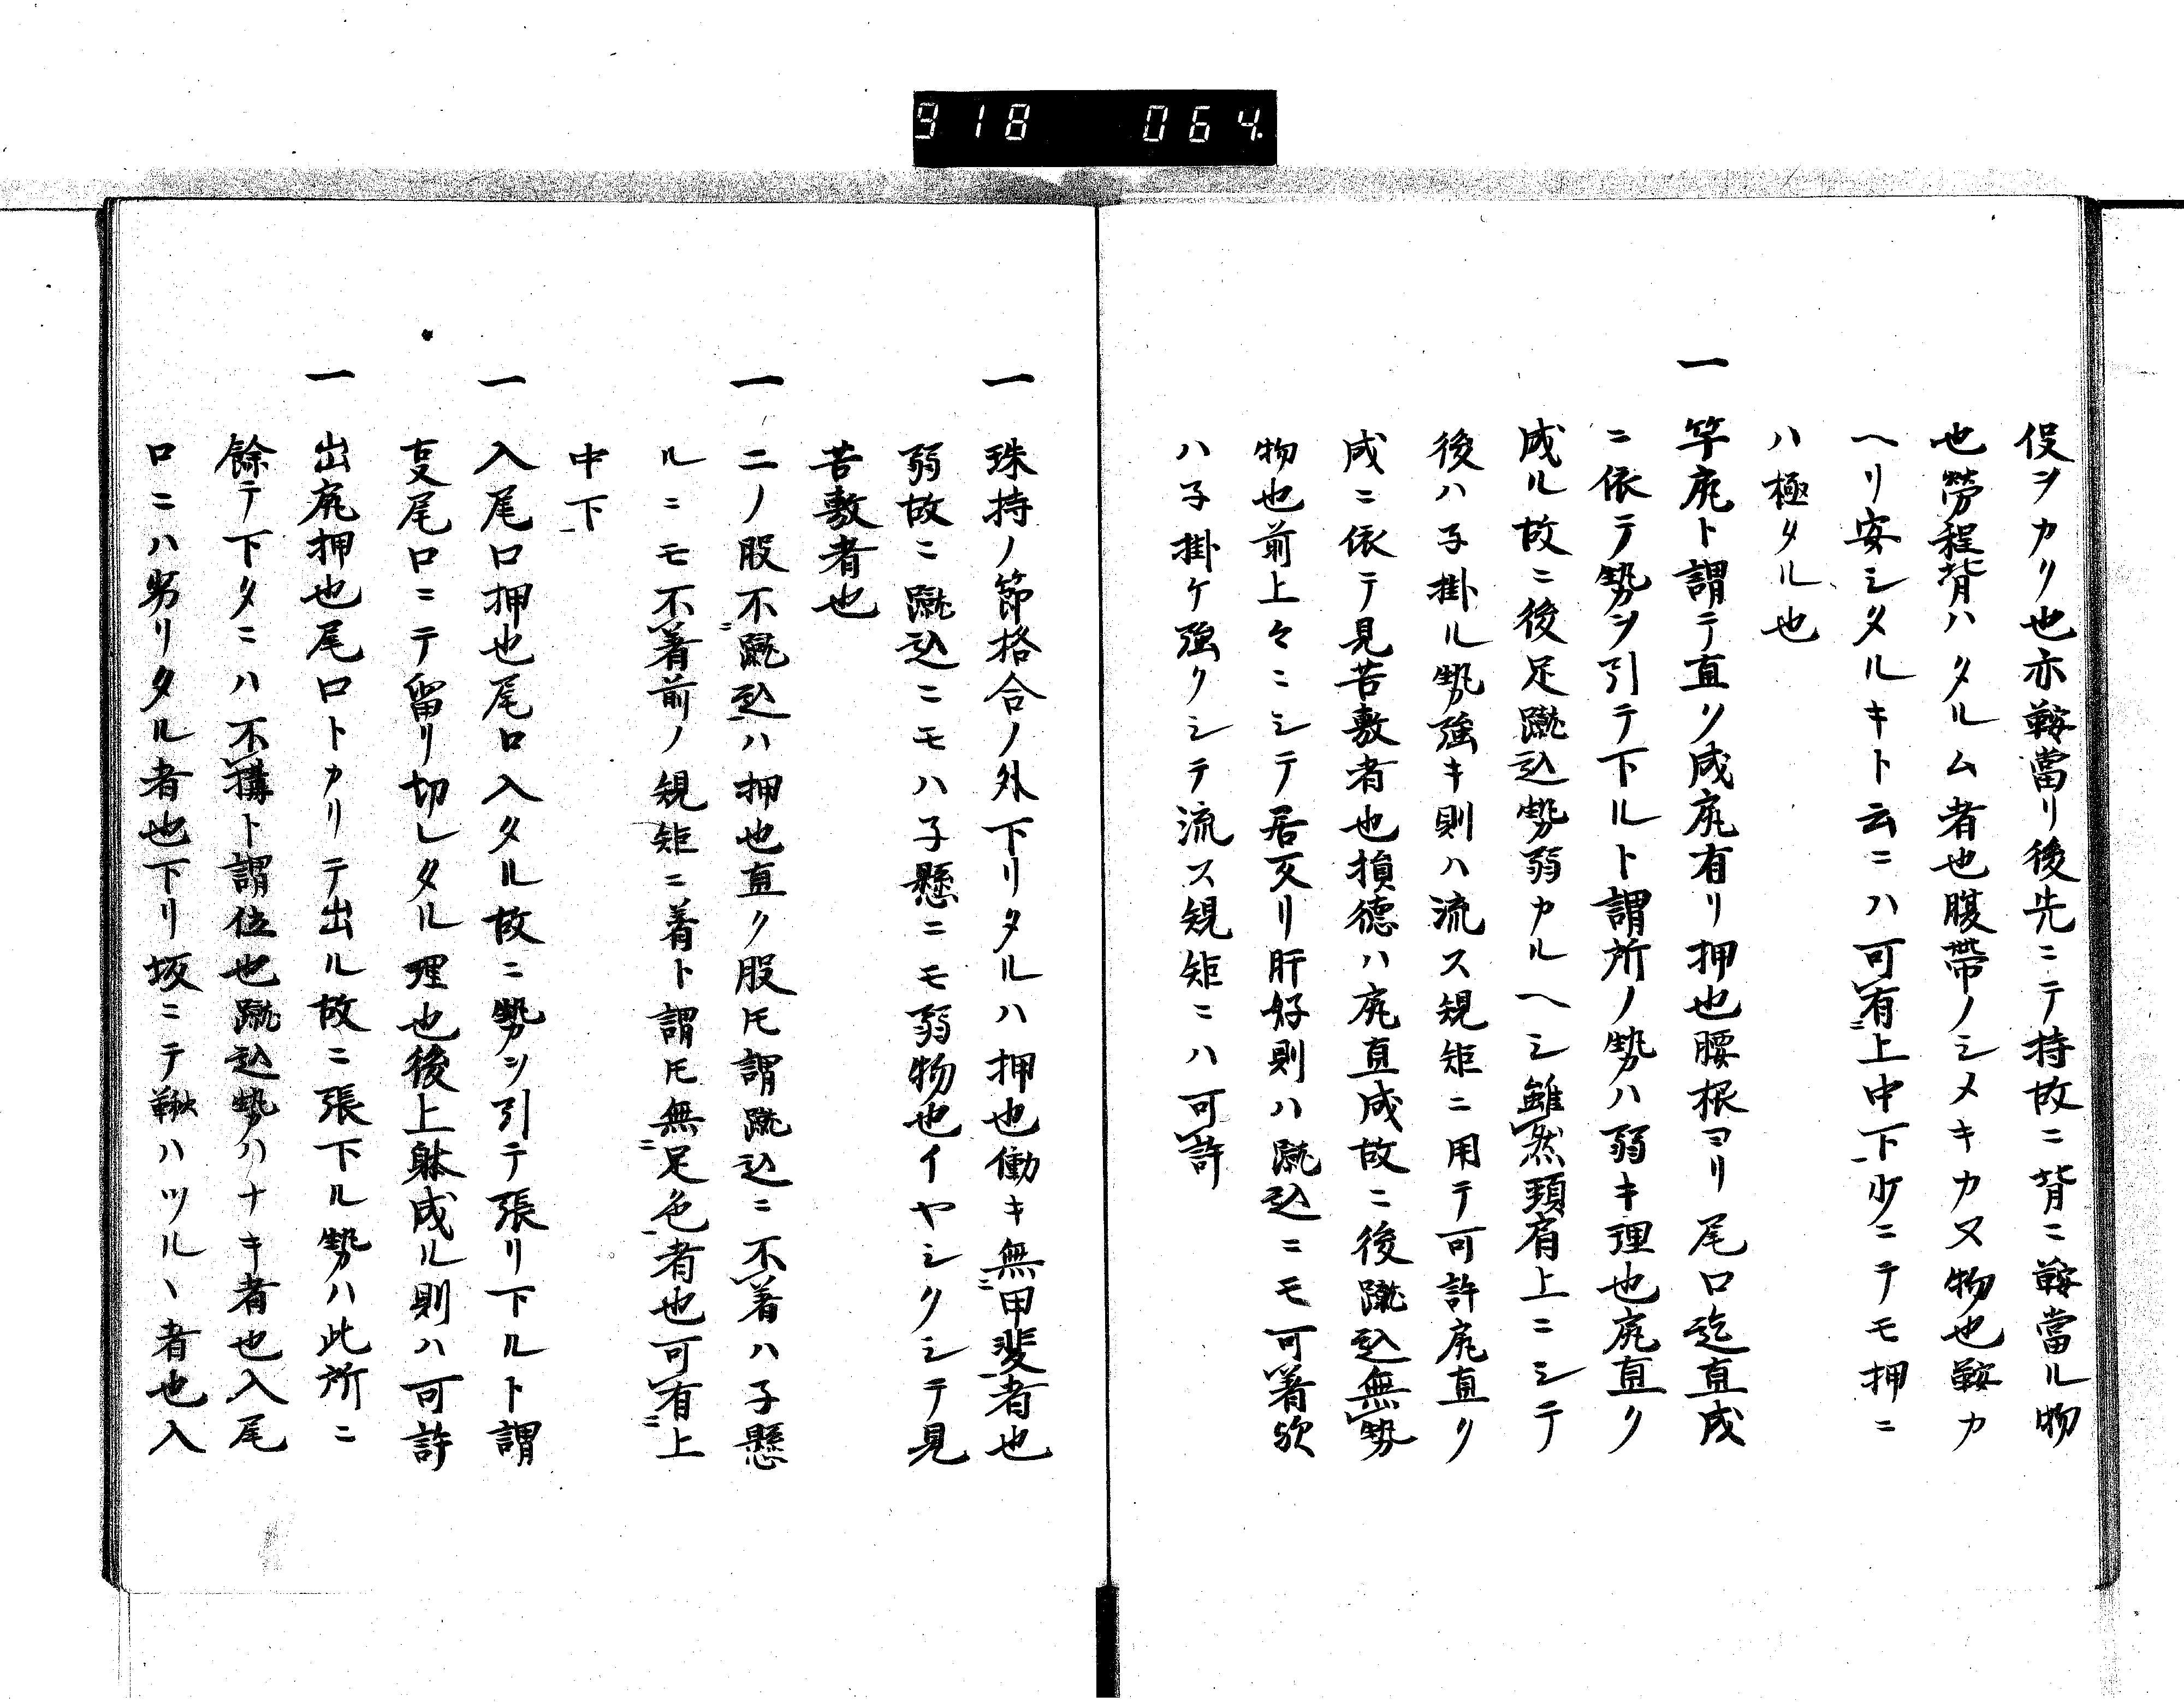 918 064.
役ヲカリ也亦鞍當リ後先ニテ持故ニ背ニ鞍當ル物
也労程背ハタルム者也腹帶ノシメキカヌ物也鞍カ
ヘリ安シタルキト云ニハ可有上中下少ニテモ押ニ
ハ極タル也
一 竿尻ト謂テ直リ成尻有リ押也腰根ヨリ尾口迄直成
ニ依テ勢ヲ引テ下ルト謂所ノ勢ハ弱キ理也尻直ク
成ル故ニ後足蹴込勢弱カルヘシ雖然頸肩上ニシテ
後ハ子掛ル勢強キ則ハ流ス規矩ニ用テ可許尻直ク
成ニ依テ見苦敷者也損德ハ尻直成故ニ後蹴込無勢
物也前上々ニシテ居友リ肝好則ハ蹴込ニモ可着欤
ハ子掛ケ強クシテ流ス規矩ニハ可許
一 珠持ノ節格合ノ外下リタルハ押也働キ無甲斐者也
弱故ニ蹴込ニモハ子懸ニモ弱物也イヤシクシテ見
苦敷者也
一 二ノ股不蹴込ハ押也直ク股トモ謂蹴込ニ不着ハ子懸
ルニモ不着前ノ規矩ニ着ト謂トモ無足色者也可有上
中下
一 入尾口押也尾口入タル故ニ勢ヲ引テ張リ下ルト謂
㕝尾口ニテ留リ切レタル理也後上躰成ル則ハ可許
一 出尻押也尾口トカリテ出ル故ニ張下ル勢ハ此所ニ
餘テ下タニハ不構ト謂位也蹴込勢ハナキ者也入尾
口ニハ劣リタル者也下リ坂ニテ鞦ハツルヽ者也入